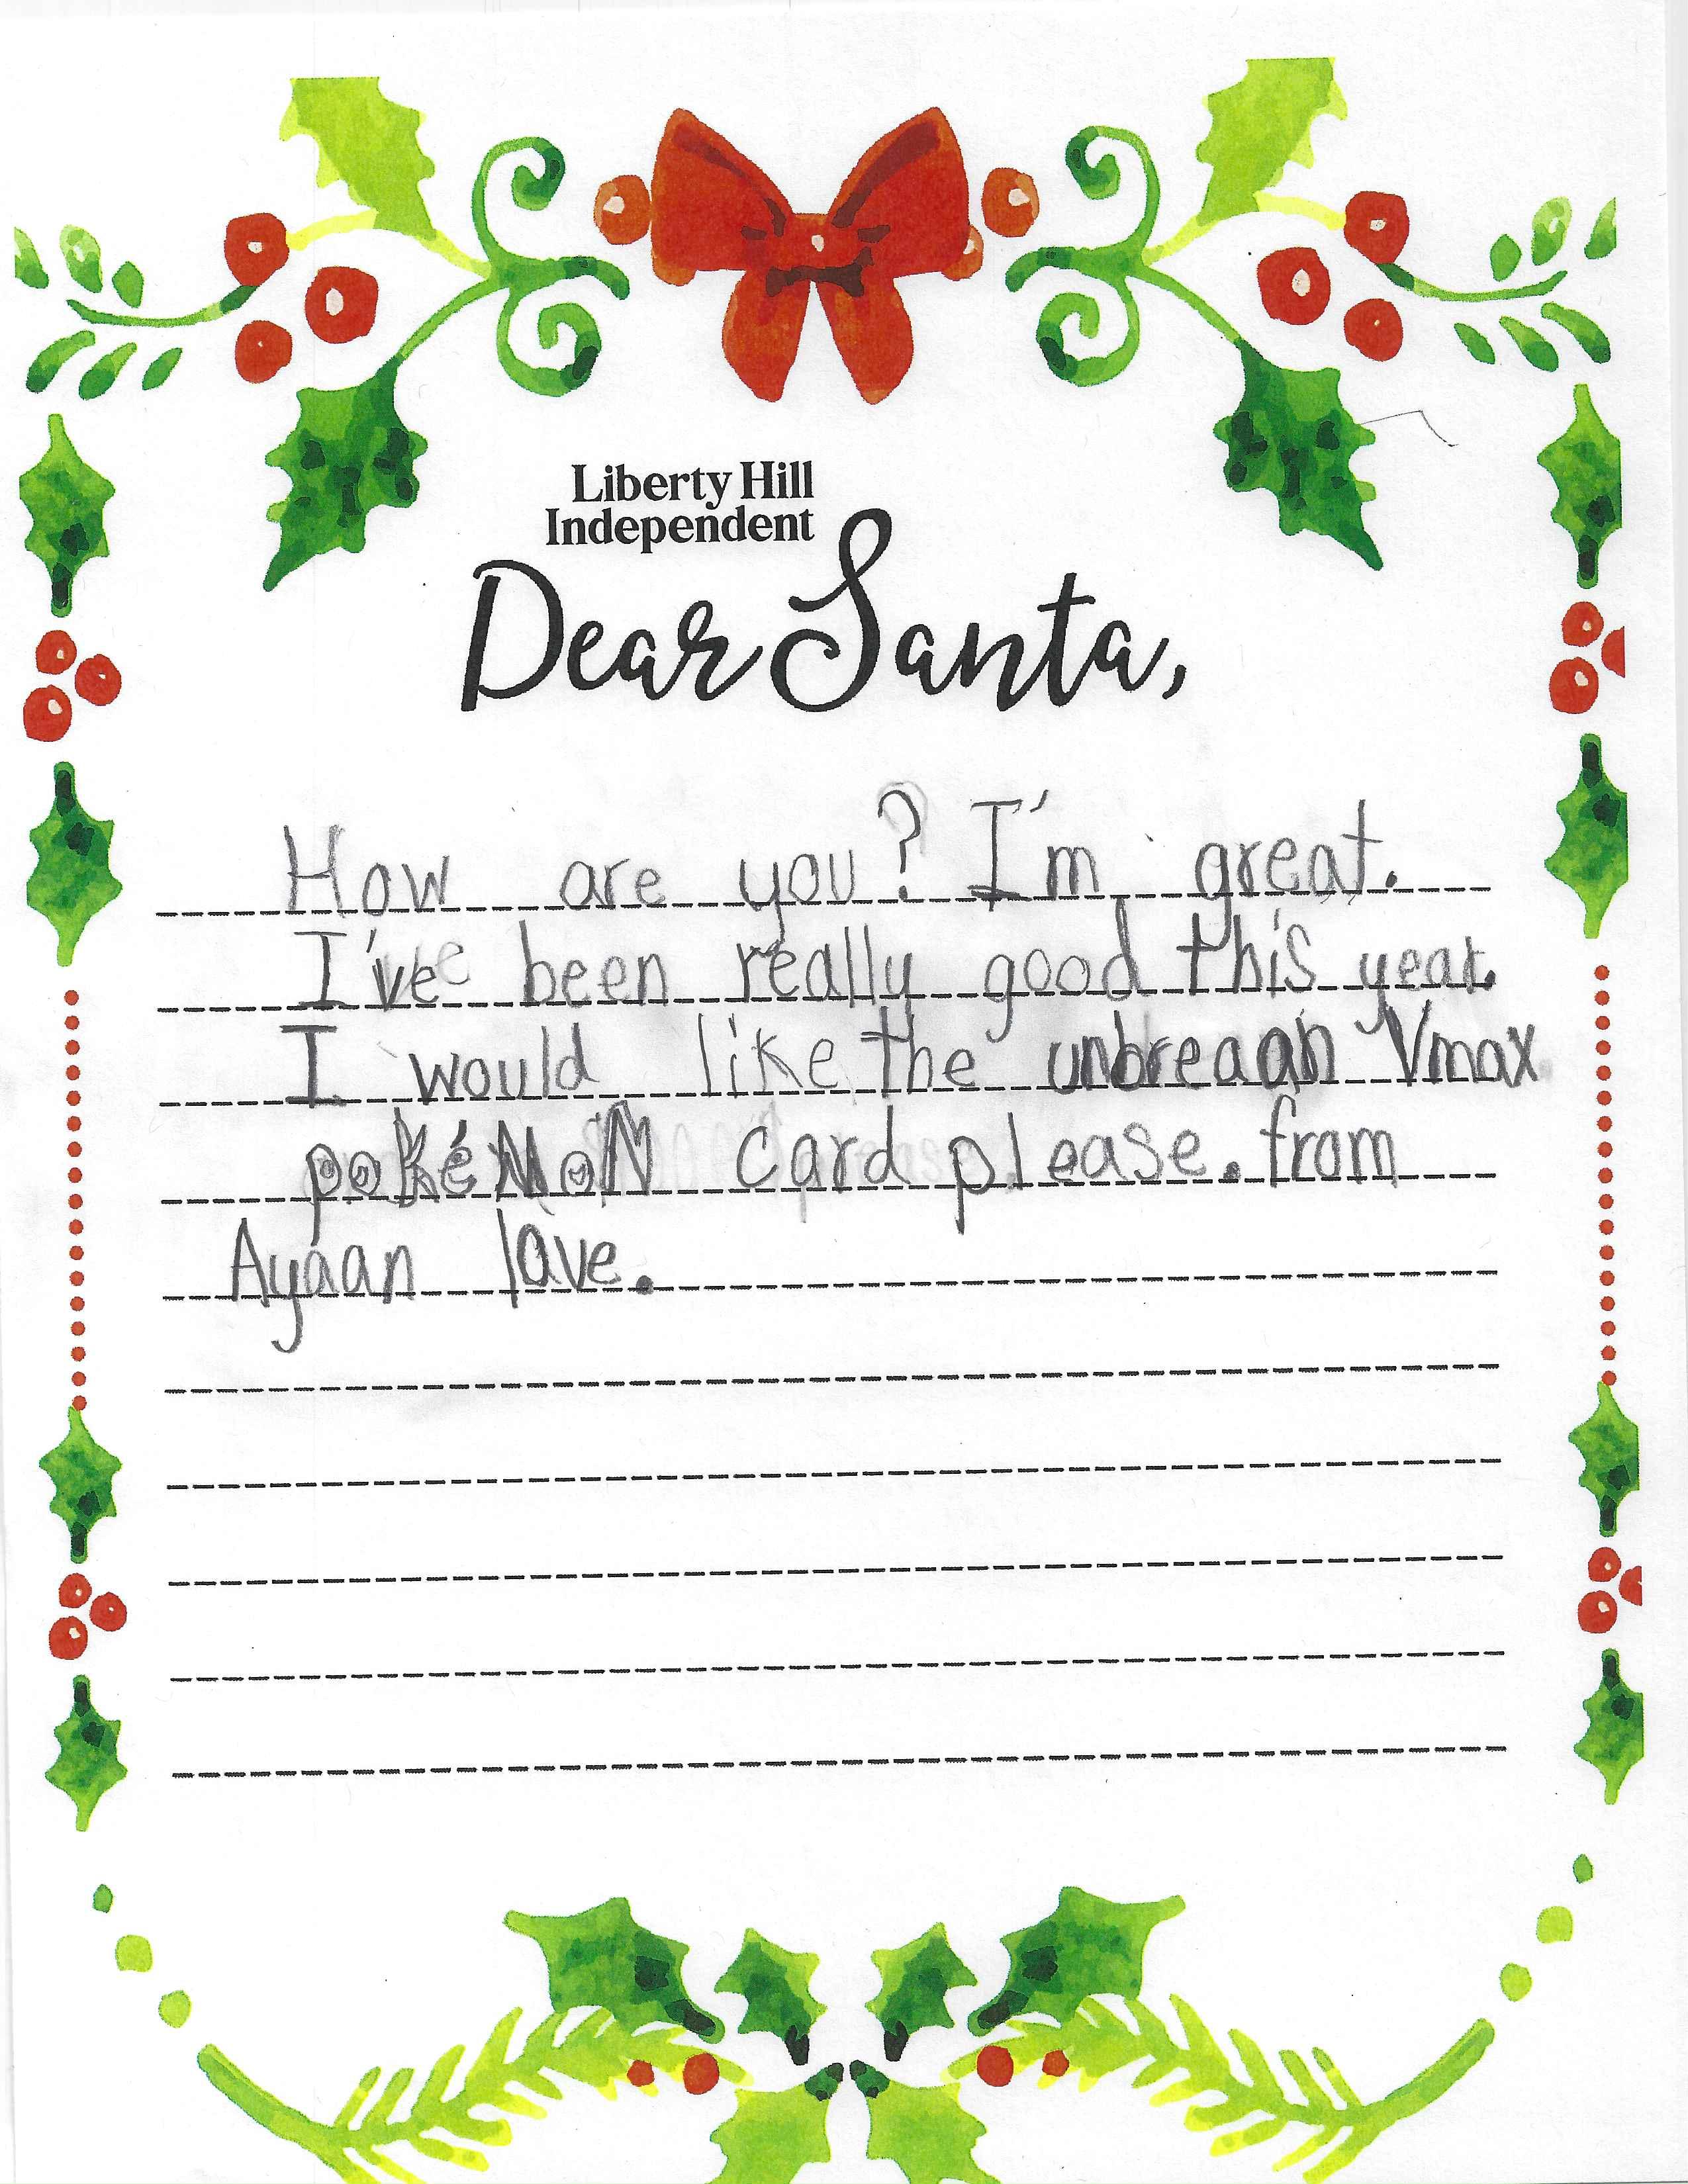 Liberty Hill
Independent
Dear Santa,
How are you? I'm great.
I've been really good this year.
I would like the unbreaan Vmax
pokéMoN card please. from
Ayaan love.